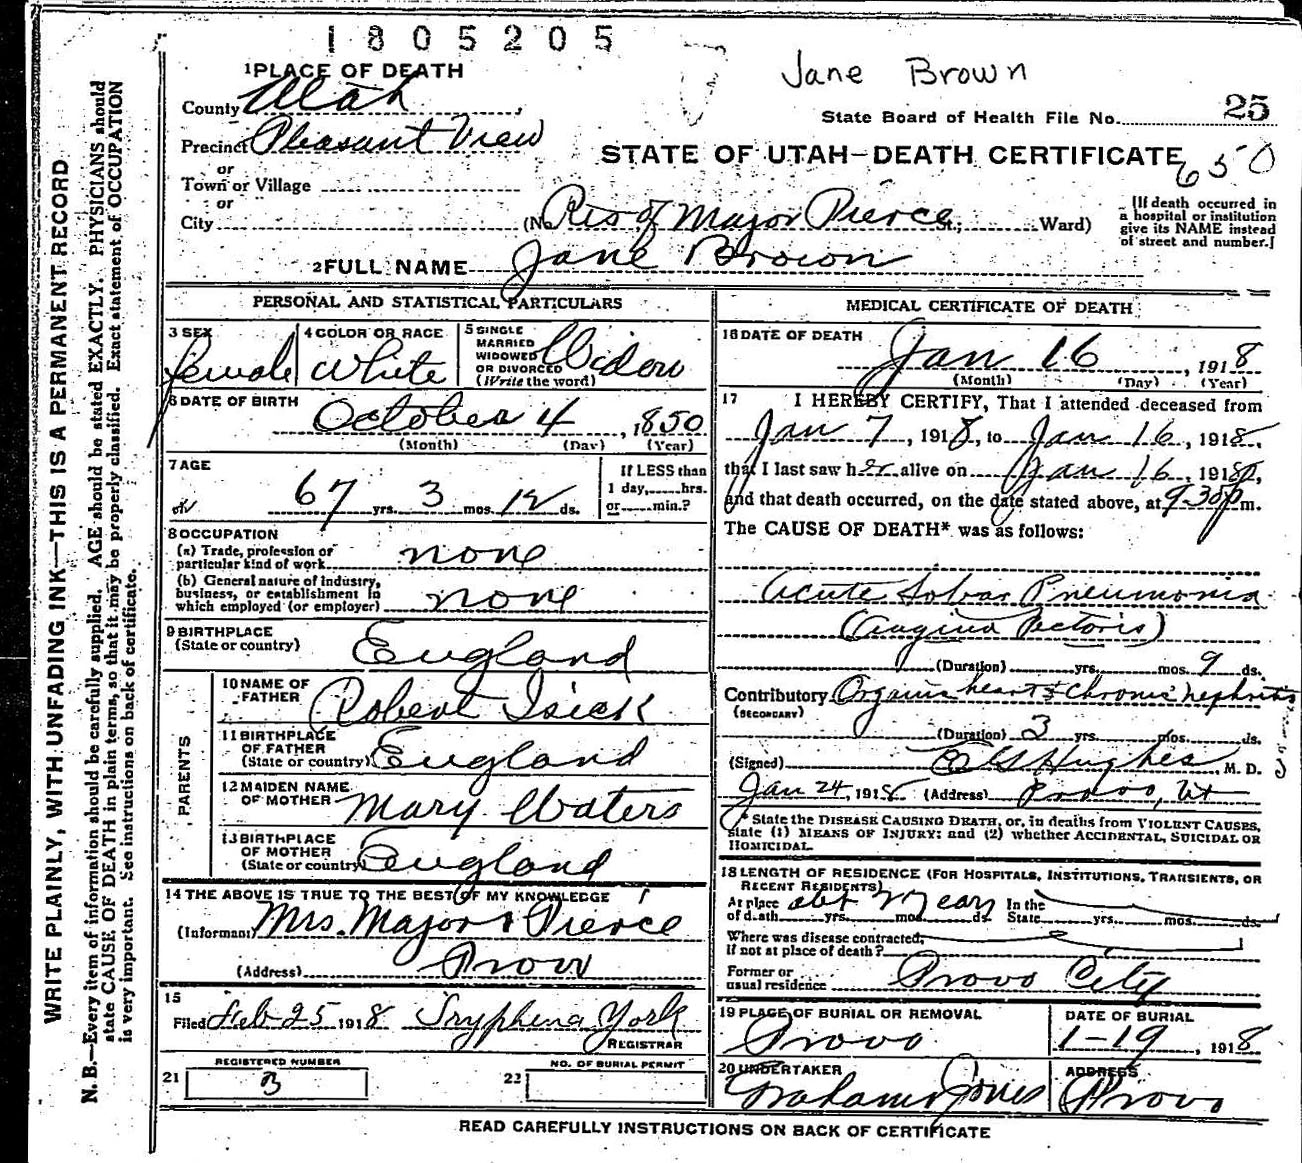 1805205
Jane Brown
1 PLACE OF DEATH
County Utah
State Board of Health File No. 25
Precinct Pleasant View
STATE OF UTAH—DEATH CERTIFICATE
650
or
Town or Village
or
City (No. Res of Major Pierce St.; Ward)
[If death occurred in
a hospital or institution
give its NAME instead
of street and number.]
2 FULL NAME Jane Brown
PERSONAL AND STATISTICAL PARTICULARS
3 SEX female
4 COLOR OR RACE White
5 SINGLE
MARRIED
WIDOWED
OR DIVORCED
(Write the word)
Widow
6 DATE OF BIRTH
October 4, 1850
(Month) (Day) (Year)
7 AGE
67 yrs. 3 mos. 12 ds.
If LESS than
1 day, hrs.
or min.?
8 OCCUPATION
(a) Trade, profession or
particular kind of work none
(b) General nature of industry,
business, or establishment in
which employed (or employer) none
9 BIRTHPLACE
(State or country) England
PARENTS
10 NAME OF
FATHER Robert Isick
11 BIRTHPLACE
OF FATHER
(State or country) England
12 MAIDEN NAME
OF MOTHER Mary Waters
13 BIRTHPLACE
OF MOTHER
(State or country) England
14 THE ABOVE IS TRUE TO THE BEST OF MY KNOWLEDGE
(Informant) Mrs. Major Pierce
(Address) Provo
15
Filed Feb 25 1918 Tryphena York
REGISTRAR
REGISTERED NUMBER
21 3
NO. OF BURIAL PERMIT
22
MEDICAL CERTIFICATE OF DEATH
16 DATE OF DEATH
Jan 16, 1918
(Month) (Day) (Year)
17 I HEREBY CERTIFY, That I attended deceased from
Jan 7, 1918, to Jan 16, 1918,
that I last saw her alive on Jan 16, 1918,
and that death occurred, on the date stated above, at 9-30 p m.
The CAUSE OF DEATH* was as follows:
Acute Lobar Pneumonia
(Angina Pectoris)
(Duration) yrs. mos. 9 ds.
Contributory Organic heart & Chronic nephritis
(SECONDARY)
(Duration) 3 yrs. mos. ds.
(Signed) Hughes, M. D.
Jan 24, 1918 (Address) Provo, Ut
* State the DISEASE CAUSING DEATH, or, in deaths from VIOLENT CAUSES,
state (1) MEANS OF INJURY; and (2) whether ACCIDENTAL, SUICIDAL OR
HOMICIDAL.
18 LENGTH OF RESIDENCE (FOR HOSPITALS, INSTITUTIONS, TRANSIENTS, OR
RECENT RESIDENTS)
At place
of death yrs. mos. ds.
In the
State yrs. mos. ds.
Where was disease contracted,
if not at place of death?
Former or
usual residence Provo City
19 PLACE OF BURIAL OR REMOVAL
Provo
DATE OF BURIAL
1-19, 1918
20 UNDERTAKER
Graham & Jones
ADDRESS
Provo
READ CAREFULLY INSTRUCTIONS ON BACK OF CERTIFICATE
WRITE PLAINLY, WITH UNFADING INK—THIS IS A PERMANENT RECORD
N. B.—Every item of information should be carefully supplied. AGE should be stated EXACTLY. PHYSICIANS should
state CAUSE OF DEATH in plain terms, so that it may be properly classified. Exact statement of OCCUPATION
is very important. See instructions on back of certificate.